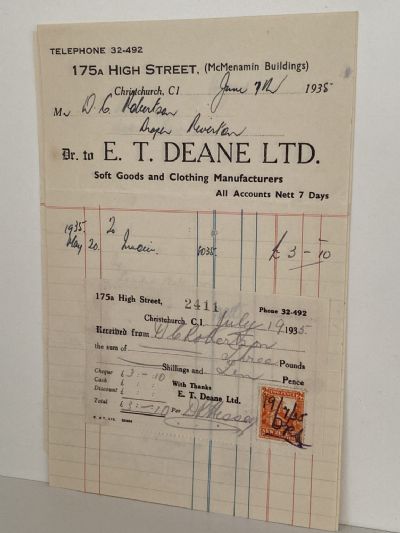 TELEPHONE 32-492
175A HIGH STREET, (McMenamin Buildings)
Christchurch, C1 June 7th 1935
Mr D. C. Robertson
Draper Riverton
Dr. to E. T. DEANE LTD.
Soft Goods and Clothing Manufacturers
All Accounts Nett 7 Days
1935 To
May 20. Invoice 6035 £3-"-10
175A High Street, 2411 Phone 32-492
Christchurch, C.1 July 19 1935
Received from D C Robertson
the sum of Three Pounds
Shillings and Ten Pence
Cheque £3:-10
Cash £ : : With Thanks
Discount £ : : E. T. Deane Ltd.
Total £3:-10 Per
19/7/35